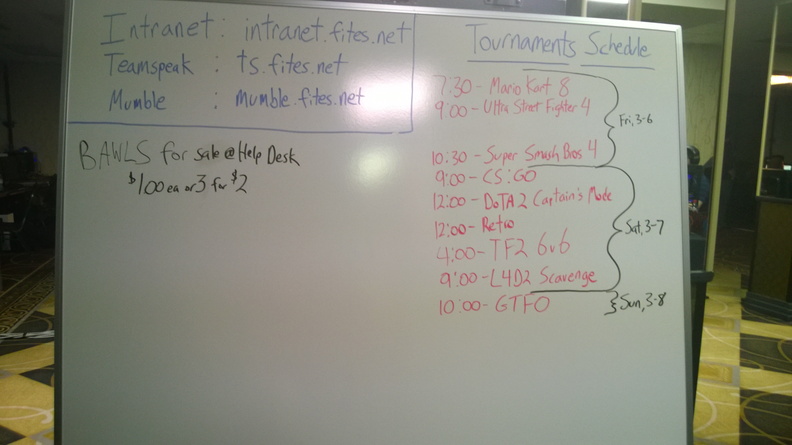 Intranet : intranet.fites.net
Teamspeak : ts.fites.net
Mumble : mumble.fites.net
BAWLS for sale @ Help Desk
$1.00 ea or 3 for $2
Tournaments Schedule
7:30 - Mario Kart 8
9:00 - Ultra Street Fighter 4
10:30 - Super Smash Bros 4
Fri, 3-6
9:00 - CS:GO
12:00 - DoTA 2 Captain's Mode
12:00 - Retro
4:00 - TF2 6v6
9:00 - L4D2 Scavenge
Sat, 3-7
10:00 - GTFO
Sun, 3-8